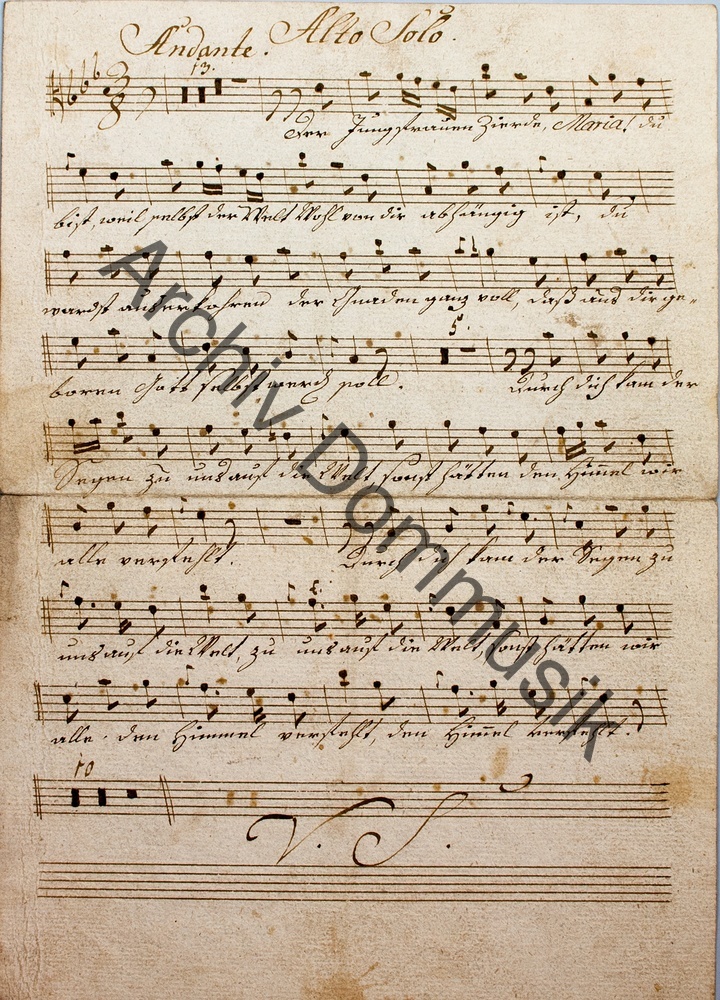 Andante. Alto Solo.
13.
Der Jungfrauen Zierde, Maria! du
bist, weil selbst der Welt Wohl von dir abhängig ist, du
wardst auserkohren der Gnaden ganz voll, daß aus dir ge-
5.
boren Gott selbst werden soll. Durch dich kam der
Segen zu uns auf die Welt, sonst hätten den Himel wir
alle verfehlt. Durch dich kam der Segen zu
uns auf die Welt, zu uns auf die Welt, sonst hätten wir
alle den Himmel verfehlt, den Himel verfehlt.
10
V. S.
Archiv Dommusik